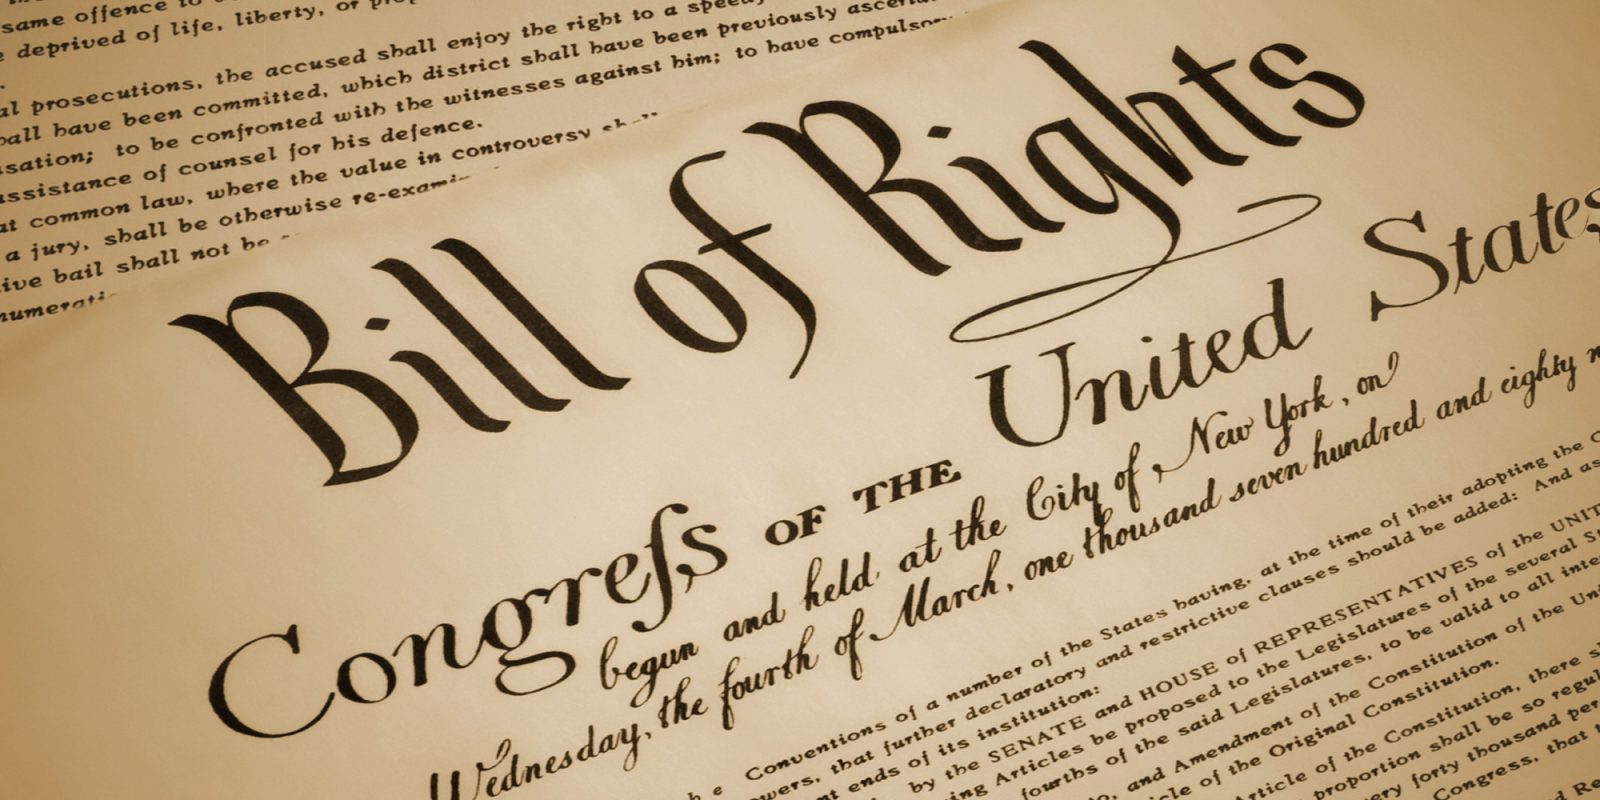 same offence to
deprived of life, liberty, or
al prosecutions, the accused shall enjoy the right to a speedy
hall have been committed, which district shall have been previously
sation; to be confronted with the witnesses against him; to have
assistance of counsel for his defence.
at common law, where the value in controversy
a jury, shall be otherwise
ive bail shall not be
Bill of Rights
Congreſs OF THE United States
begun and held at the City of New York, on
Wednesday, the fourth of March, one thousand seven hundred and eighty
Conventions of a number of the States having, at the time of their adopting the
owers, that further declaratory and restrictive clauses should be added: And as
ent ends of its institution:
by the SENATE and HOUSE of REPRESENTATIVES of the
ing Articles be proposed to the Legislatures of the several
fourths of the said Legislatures, to be valid to all
and Amendment of the Constitution of the
cle of the Original Constitution.
Article of the Constitution, there
proportion shall be so
ery forty thousand
Congress, that